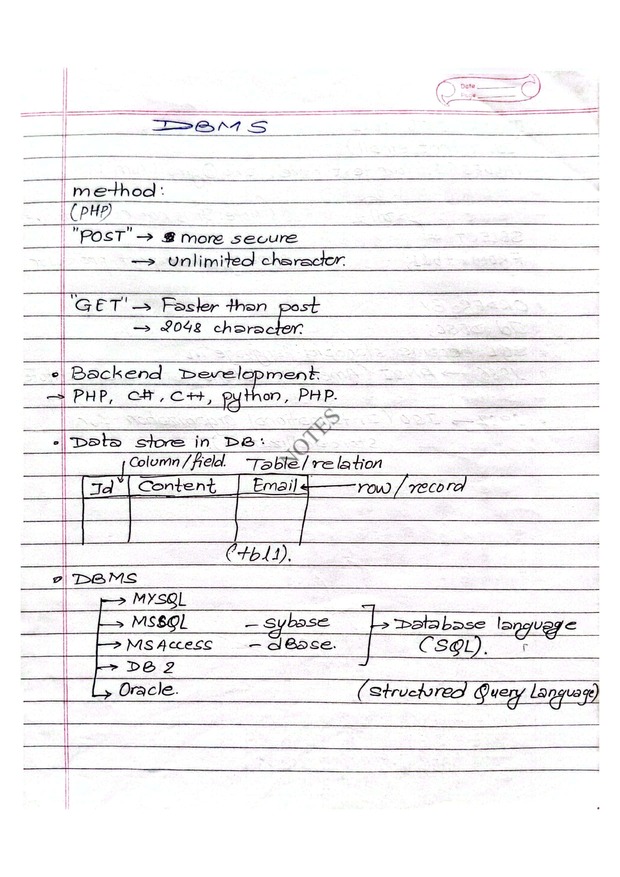 Date
DBMS
method:
(PHP)
"POST" → more secure
→ unlimited character.
"GET" → Faster than post
→ 2048 character.
• Backend Development.
→ PHP, C#, C++, python, PHP.
NOTES
• Data store in DB:
Column/field. Table/relation
Id Content Email ← row/record
(tbl1).
• DBMS
→ MYSQL
→ MSSQL - sybase → Database language
→ MS Access - dBase. (SQL).
→ DB 2
→ Oracle. (Structured Query Language)